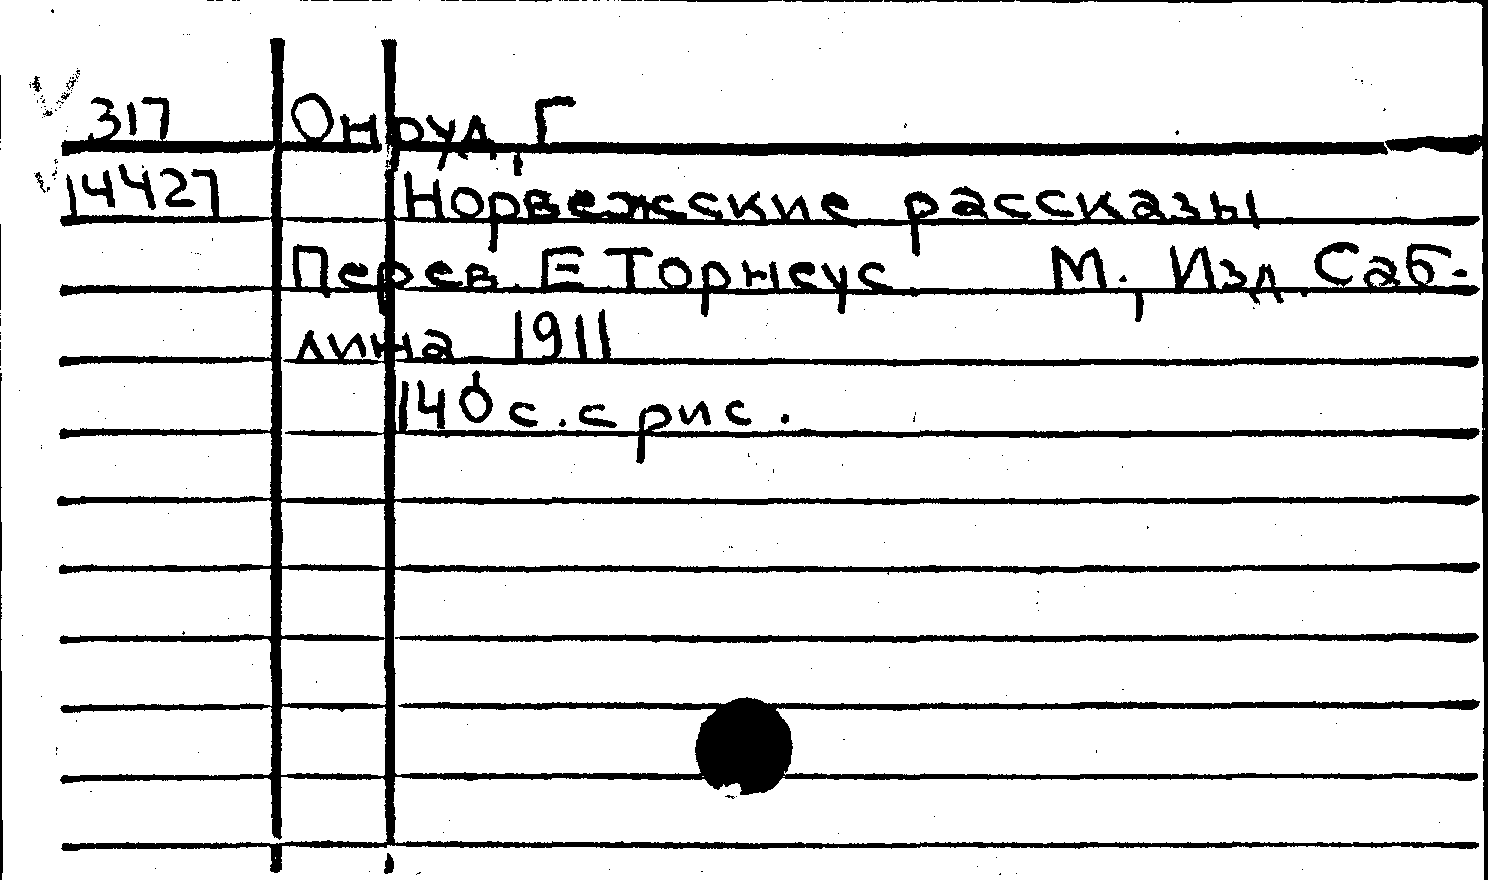 317 Онруд, Г
14427 Норвежские рассказы
Перев. Е Торнеус. М., Изд. Саб-
лина 1911
140 с. с рис.